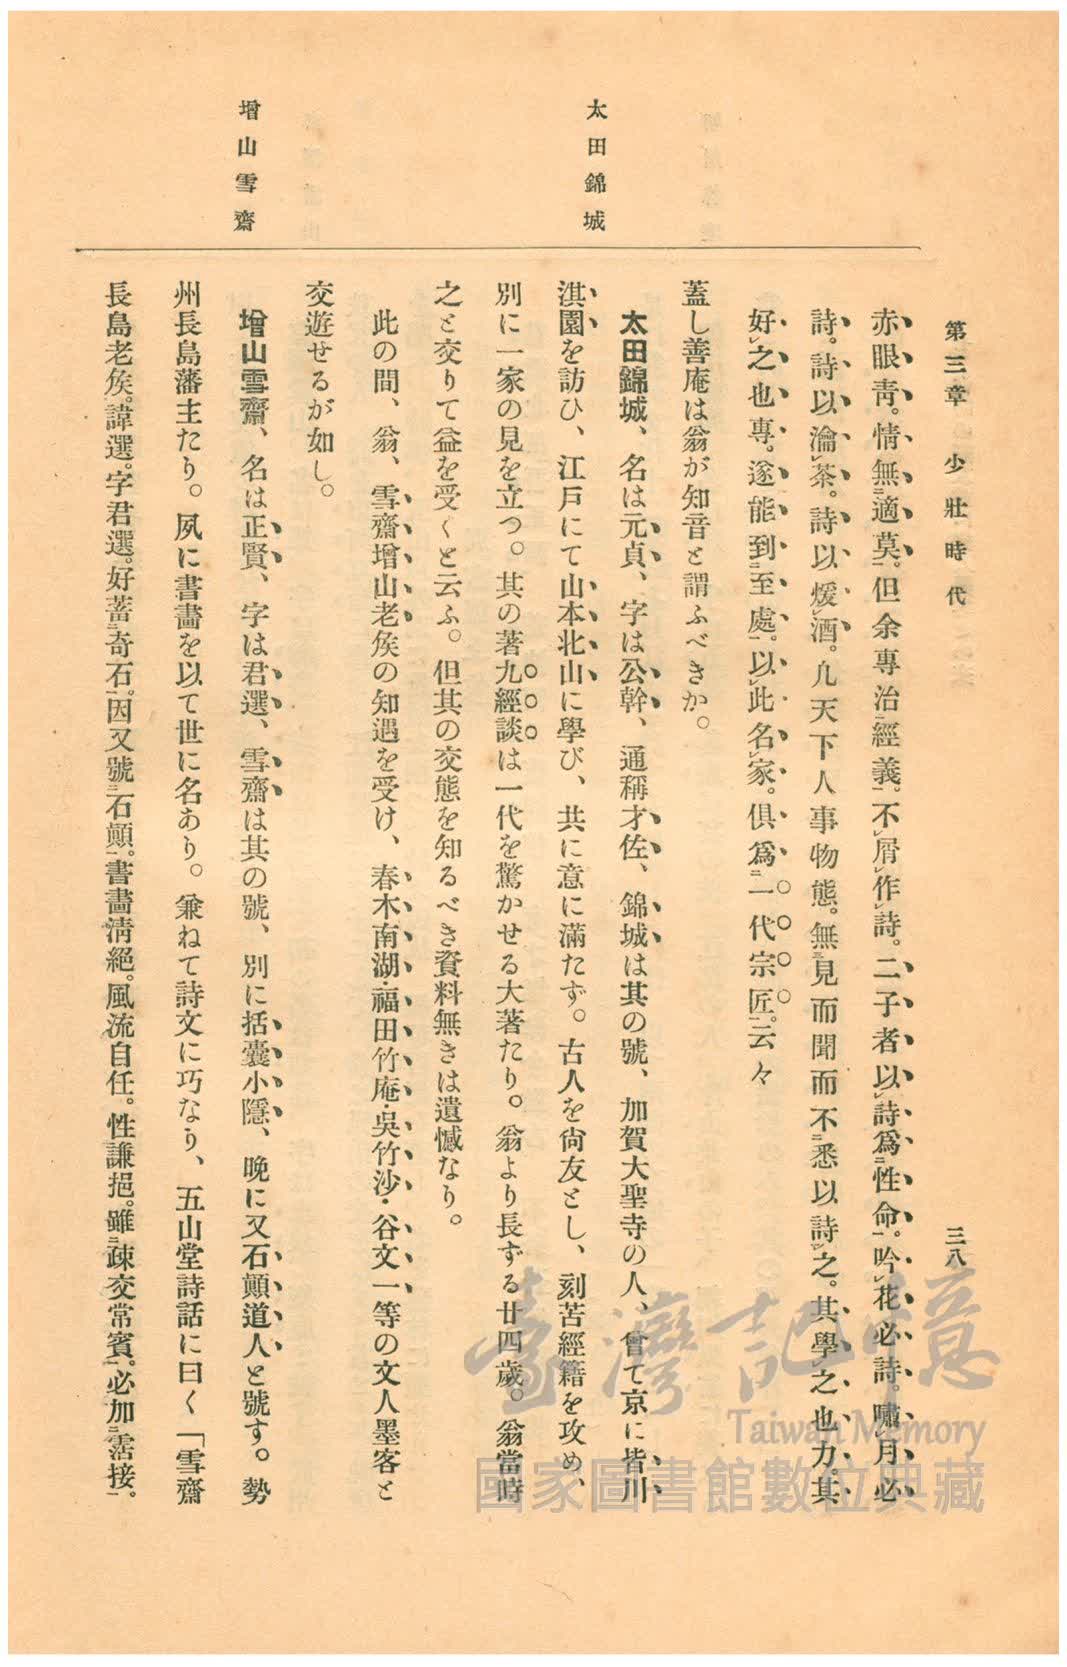 第三章 少壯時代 三八
太田錦城
增山雪齋
赤眼靑。情無適莫。但余專治經義。不屑作詩。二子者以詩爲性命。吟花必詩。嘯月必
詩。詩以瀹茶。詩以煖酒。凡天下人事物態。無見而聞而不悉以詩之。其學之也力。其
好之也專。遂能到至處。以此名家。俱爲一代宗匠。云々
蓋し善庵は翁が知音と謂ふべきか。
太田錦城、名は元貞、字は公幹、通稱才佐、錦城は其の號、加賀大聖寺の人、曾て京に皆川
淇園を訪ひ、江戸にて山本北山に學び、共に意に滿たず。古人を尙友とし、刻苦經籍を攻め、
別に一家の見を立つ。其の著九經談は一代を驚かせる大著たり。翁より長ずる廿四歲。翁當時
之と交りて益を受くと云ふ。但其の交態を知るべき資料無きは遺憾なり。
此の間、翁、雪齋增山老矦の知遇を受け、春木南湖・福田竹庵・吳竹沙・谷文一等の文人墨客と
交遊せるが如し。
增山雪齋、名は正賢、字は君選、雪齋は其の號、別に括囊小隱、晩に又石顚道人と號す。勢
州長島藩主たり。夙に書畵を以て世に名あり。兼ねて詩文に巧なり、五山堂詩話に曰く「雪齋
長島老矦。諱選。字君選。好蓄奇石。因又號石顚。書畵淸絕。風流自任。性謙挹。雖疎交常賓。必加霑接。
臺灣記憶
Taiwan Memory
國家圖書館數位典藏